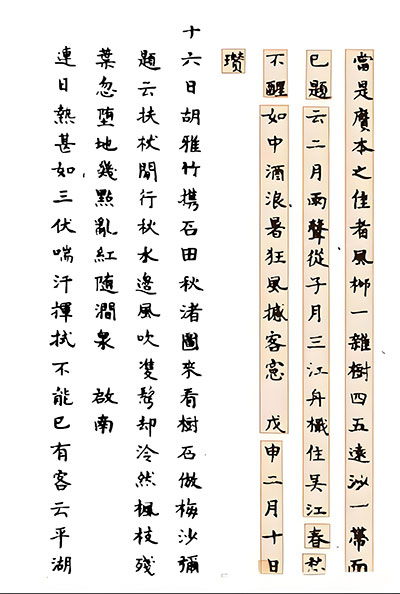 當是贗本之佳者風柳一雜樹四五遠沙一帶而
已題云二月雨聲從子月三江舟檝住吳江春愁
不醒如中酒浪暑狂風撼客窓 戊申二月十日
瓚
十六日胡雅竹携石田秋渚圖來看樹石倣梅沙彌
題云扶杖閒行秋水邊風吹雙髩却泠然楓枝殘
葉忽墮地幾點亂紅隨澗泉 啟南
連日熱甚如三伏喘汗揮拭不能已有客云平湖